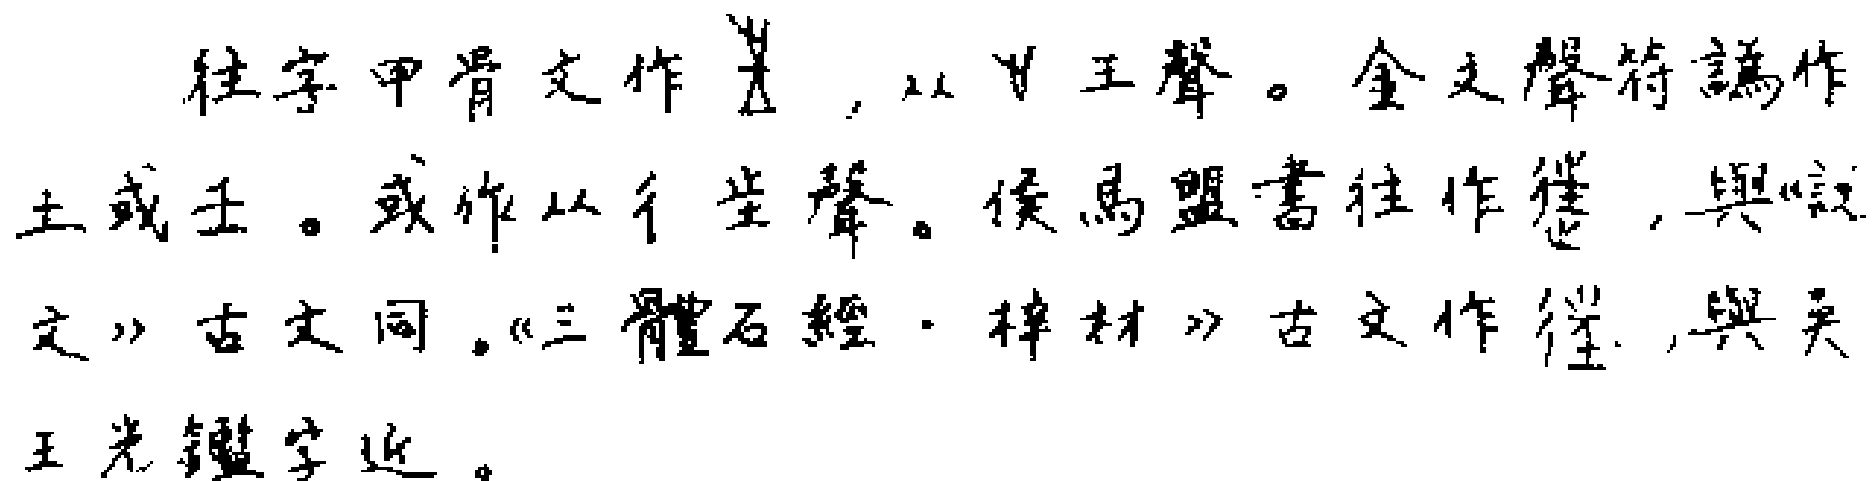 往字甲骨文作，从止王聲。金文聲符譌作
土或壬。或作从彳㞷聲。侯馬盟書往作𨓹，與《說
文》古文同。《三體石經·梓材》古文作𢓸，與吳
王光鑑字近。